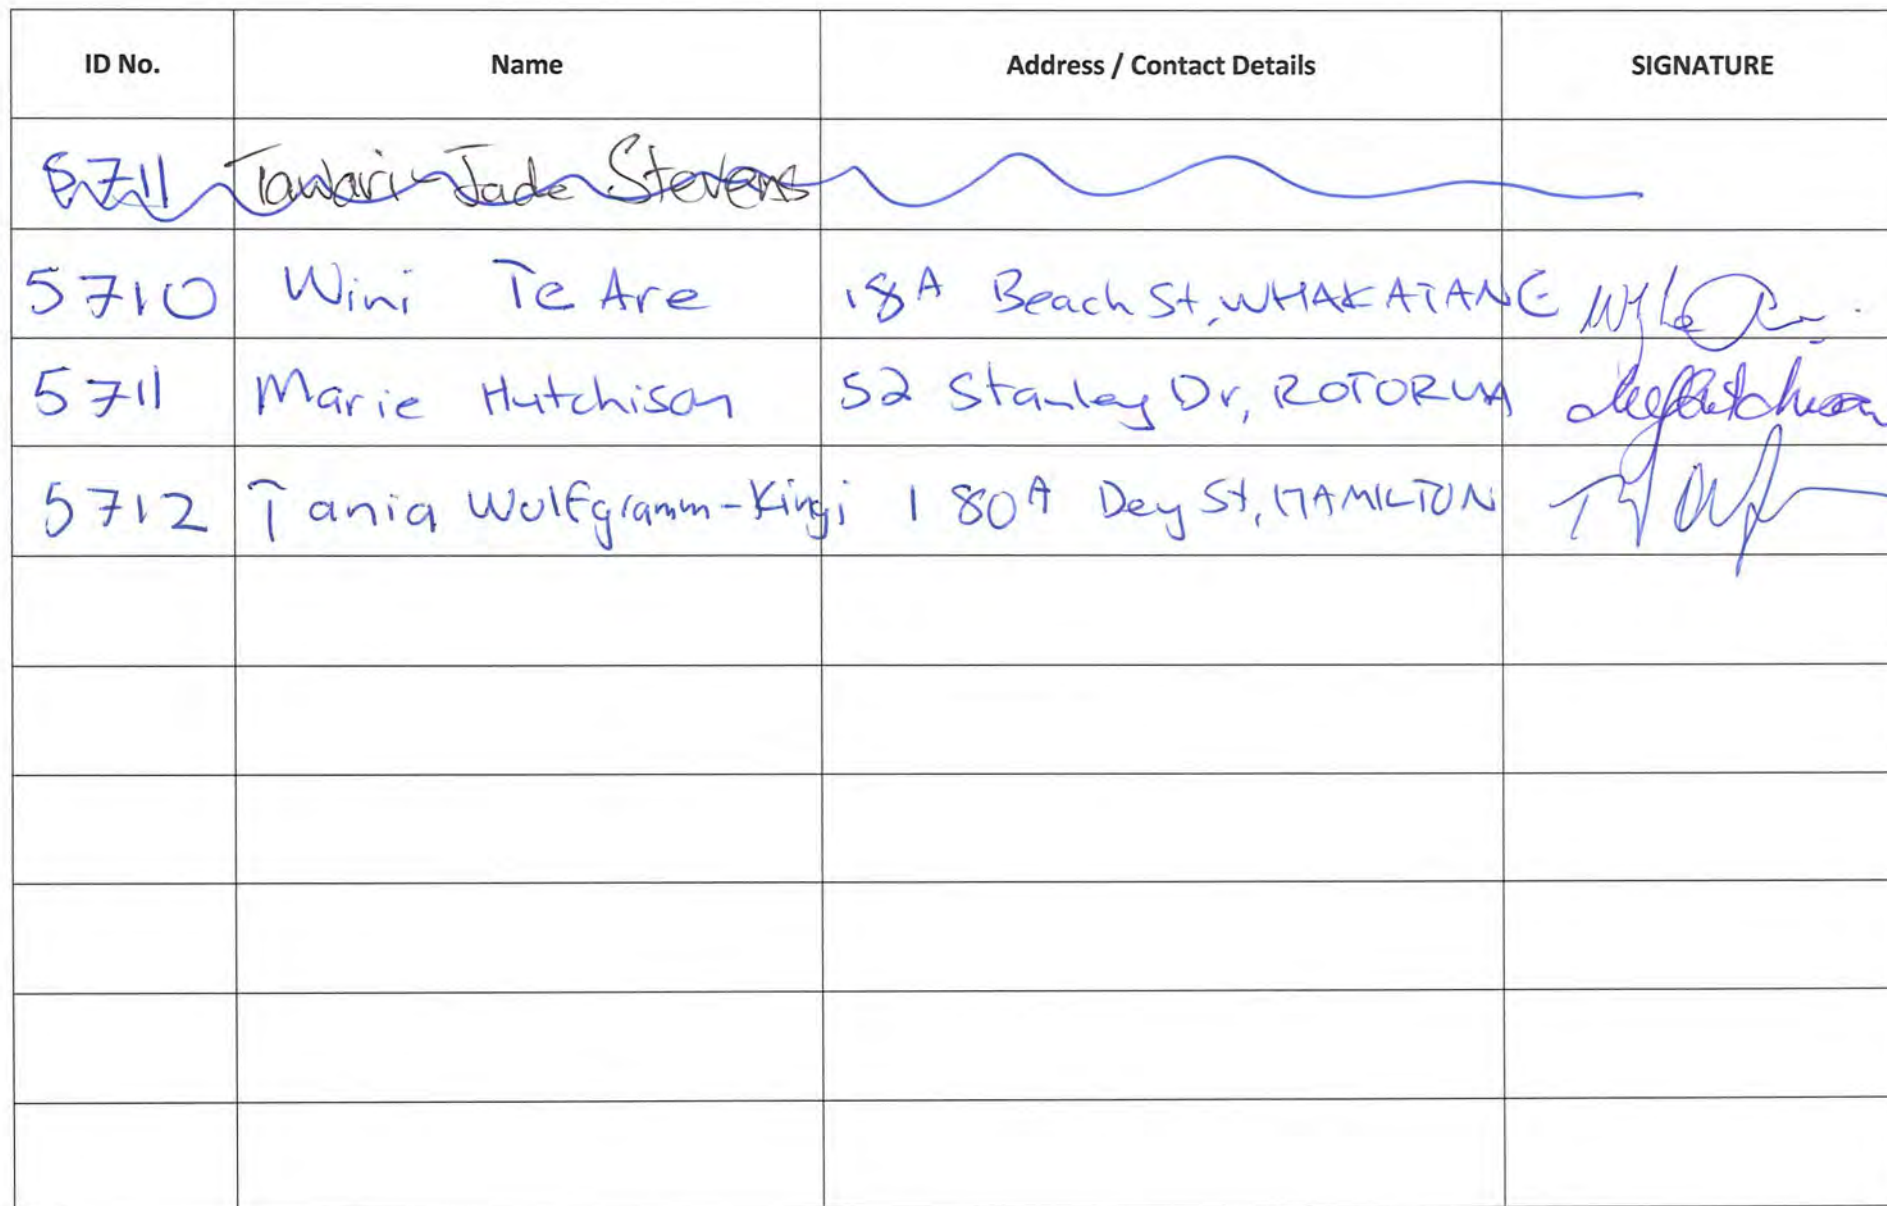 ID No. Name Address / Contact Details SIGNATURE
5711 Tawari-Jade Stevens
5710 Wini Te Are 18A Beach St, WHAKATANE
5711 Marie Hutchison 52 Stanley Dr, ROTORUA
5712 Tania Wolfgramm-Kingi 180A Dey St, HAMILTON